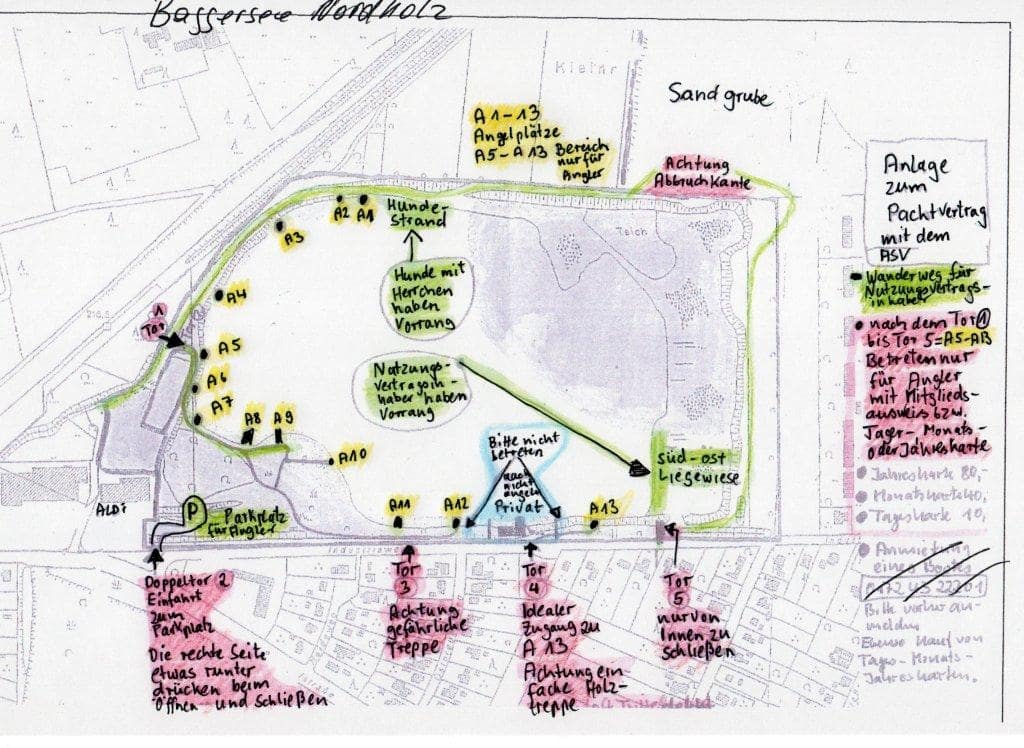 Baggersee Nordholz
Sandgrube
A1-13
Angelplätze
A5-A13 Bereich
nur für
Angler
Achtung
Abbruchkante
Anlage
zum
Pachtvertrag
mit dem
ASV
Wanderweg für
Nutzungsvertrags-
inhaber
nach dem Tor 1
bis Tor 5=A5-A13
Betreten nur
für Angler
mit Mitglieds-
ausweis bzw.
Tages-Monats-
oder Jahreskarte
Jahreskarte 80,-
Monatskarte 40,
Tageskarte 10,
Anmietung
eines Bootes
Bitte vorher an-
melden
Tages-Monats-
Jahreskarten.
A2 A1
Hunde-
strand
A3
Teich
Hunde mit
Herrchen
haben
Vorrang
A4
1
Tor
A5
A6
A7
A8 A9
A10
Nutzungs-
vertragsin-
haber haben
Vorrang
Bitte nicht
betreten
auch
nicht
angeln
Privat
süd-ost
Liegewiese
A11
A12
A13
ALDI
P
Parkplatz
für Angler
Doppeltor 2
Einfahrt
zum
Parkplatz
Die rechte Seite
etwas runter
drücken beim
Öffnen und schließen
Tor
3
Achtung
gefährliche
Treppe
Tor
4
Idealer
Zugang zu
A 13
Achtung ein
fache Holz-
treppe
Tor
5
nur von
Innen zu
schließen